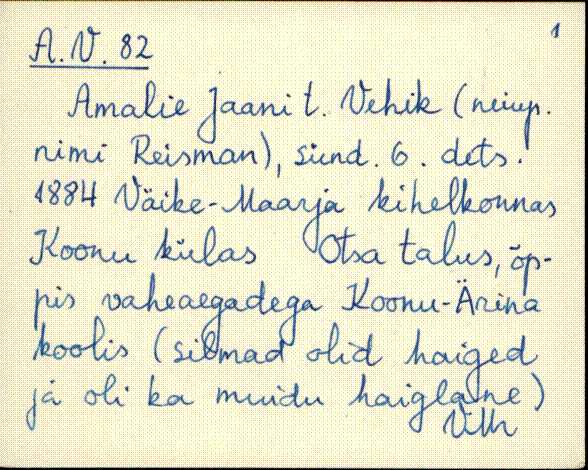 1
A.V. 82
Amalie Jaani t. Vehik (neiup.
nimi Reisman), sünd. 6. dets.
1884 Väike-Maarja kihelkonnas
Koonu külas Otsa talus, õp-
pis vaheaegadega Koonu-Ärina
koolis (silmad olid haiged
ja oli ka muidu haiglane)